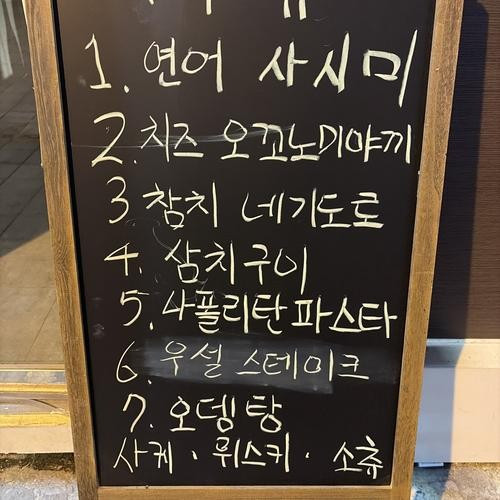 1. 연어 사시미
2. 치즈 오꼬노미야끼
3 참치 네기도로
4. 삼치구이
5. 나폴리탄 파스타
6. 우설 스테이크
7. 오뎅탕
사케 · 위스키 · 소츄